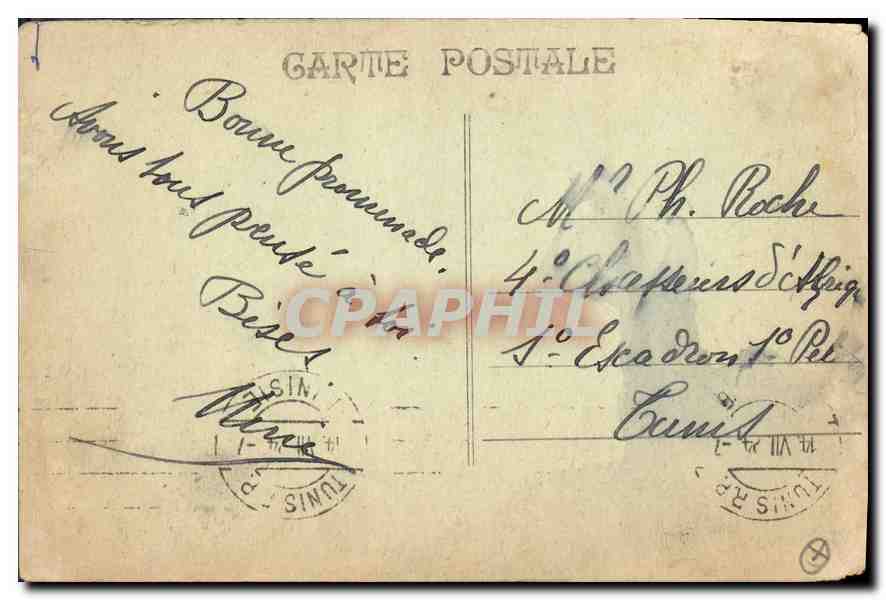 CARTE POSTALE
Bonne promenade.
Avons tous pensé à toi.
Bises
Mr Ph. Roche
4º Chasseurs d'Afriq
1º Escadron 1º Pel
Tunis
TUNIS R.P.
14 VII 24
TUNIS R.P.
14 VII 24
CPAPHIL